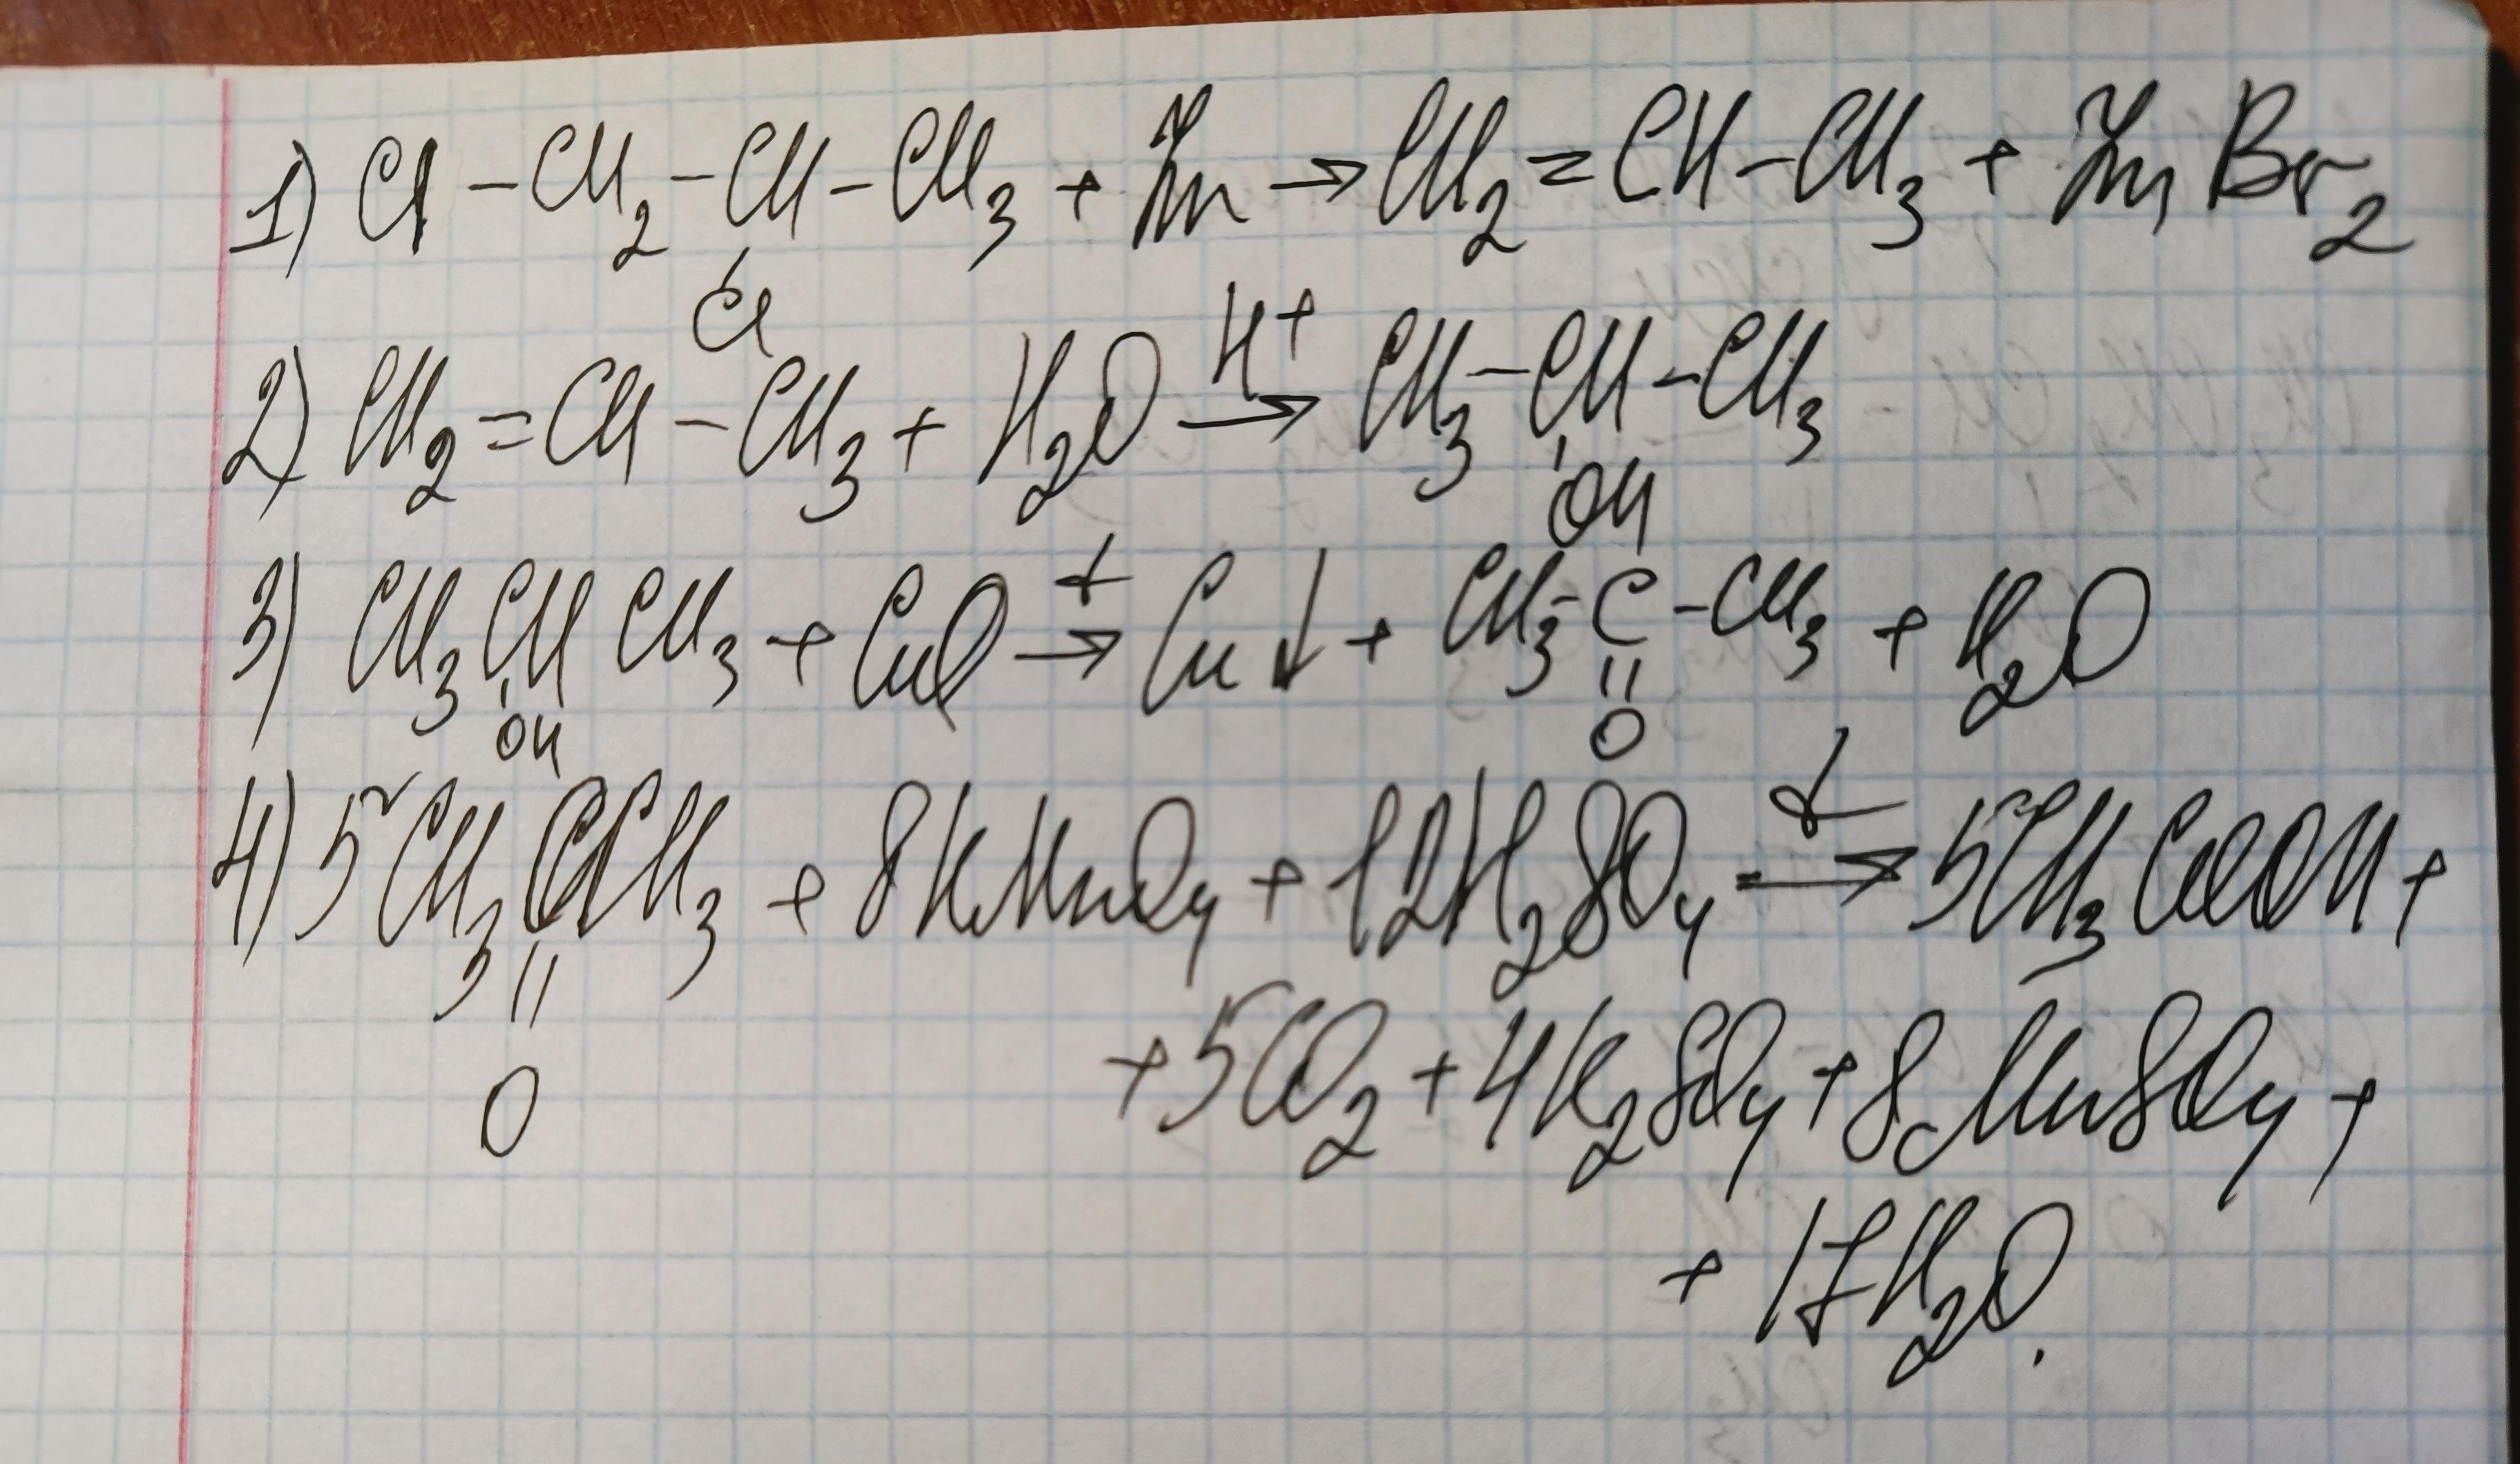 1) Cl – CH₂ – CH – CH₃ + Zn → CH₂ = CH – CH₃ + Zn Br₂
Cl
H⁺
2) CH₂ = CH – CH₃ + H₂O → CH₃ – CH – CH₃
OH
t
3) CH₃ CH CH₃ + CuO → Cu↓ + CH₃ – C – CH₃ + H₂O
OH || O
t
4) 5CH₃CCH₃ + 8KMnO₄ + 12H₂SO₄ → 5CH₃COOH +
||
O
+ 5CO₂ + 4K₂SO₄ + 8MnSO₄ +
+ 17H₂O.